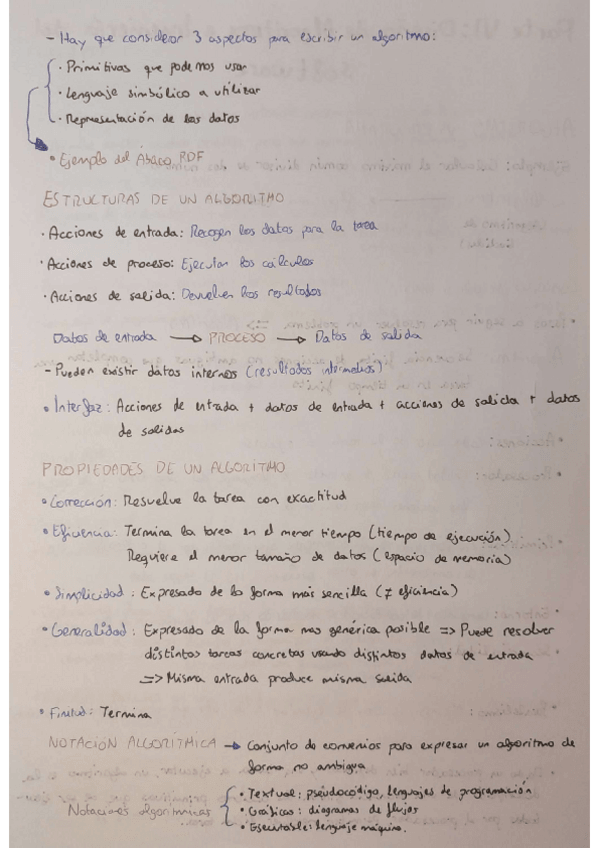 - Hay que considerar 3 aspectos para escribir un algoritmo:
· Primitivas que podemos usar
· Lenguaje simbólico a utilizar
· Representación de los datos
• Ejemplo del Ábaco RDF
ESTRUCTURAS DE UN ALGORITMO
· Acciones de entrada: Recogen los datos para la tarea
· Acciones de proceso: Ejecutan los cálculos
· Acciones de salida: Devuelven los resultados
Datos de entrada → PROCESO → Datos de salida
- Pueden existir datos internos (resultados intermedios)
• Interfaz: Acciones de entrada + datos de entrada + acciones de salida + datos
de salidas
PROPIEDADES DE UN ALGORITMO
• Corrección: Resuelve la tarea con exactitud
• Eficiencia: Termina la tarea en el menor tiempo (tiempo de ejecución)
Requiere el menor tamaño de datos (espacio de memoria)
• Simplicidad: Expresado de la forma más sencilla (≠ eficiencia)
• Generalidad: Expresado de la forma mas genérica posible => Puede resolver
distintas tareas concretas usando distintos datos de entrada
=> Misma entrada produce misma salida
• Finitud: Termina
NOTACIÓN ALGORÍTMICA → Conjunto de convenios para expresar un algoritmo de
forma no ambigua
• Textual: pseudocódigo, lenguajes de programación
Notaciones algorítmicas { • Gráficas: diagramas de flujos
• Ejecutable: lenguaje máquina.